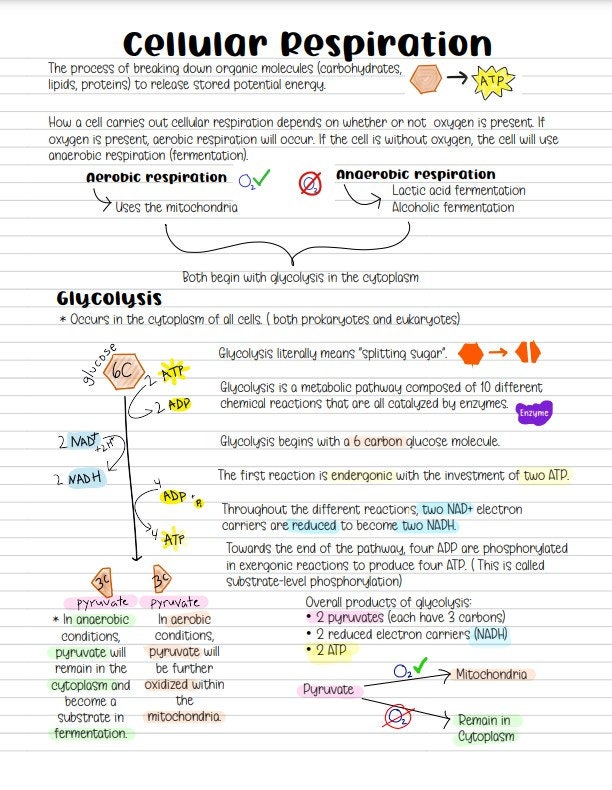 Cellular Respiration
The process of breaking down organic molecules (carbohydrates,
lipids, proteins) to release stored potential energy.
ATP
How a cell carries out cellular respiration depends on whether or not oxygen is present. If
oxygen is present, aerobic respiration will occur. If the cell is without oxygen, the cell will use
anaerobic respiration (fermentation).
Aerobic respiration O₂
Uses the mitochondria
O₂ Anaerobic respiration
Lactic acid fermentation
Alcoholic fermentation
Both begin with glycolysis in the cytoplasm
Glycolysis
* Occurs in the cytoplasm of all cells. ( both prokaryotes and eukaryotes)
glucose
6C
2 ATP
2 ADP
2 NAD+
+2H+
2 NADH
4 ADP + Pi
4 ATP
Glycolysis literally means "splitting sugar".
Glycolysis is a metabolic pathway composed of 10 different
chemical reactions that are all catalyzed by enzymes.
Enzyme
Glycolysis begins with a 6 carbon glucose molecule.
The first reaction is endergonic with the investment of two ATP.
Throughout the different reactions, two NAD+ electron
carriers are reduced to become two NADH.
Towards the end of the pathway, four ADP are phosphorylated
in exergonic reactions to produce four ATP. ( This is called
substrate-level phosphorylation)
3C 3C
pyruvate pyruvate
* In anaerobic
conditions,
pyruvate will
remain in the
cytoplasm and
become a
substrate in
fermentation.
In aerobic
conditions,
pyruvate will
be further
oxidized within
the
mitochondria.
Overall products of glycolysis:
• 2 pyruvates (each have 3 carbons)
• 2 reduced electron carriers (NADH)
• 2 ATP
Pyruvate
O₂
Mitochondria
O₂
Remain in
Cytoplasm